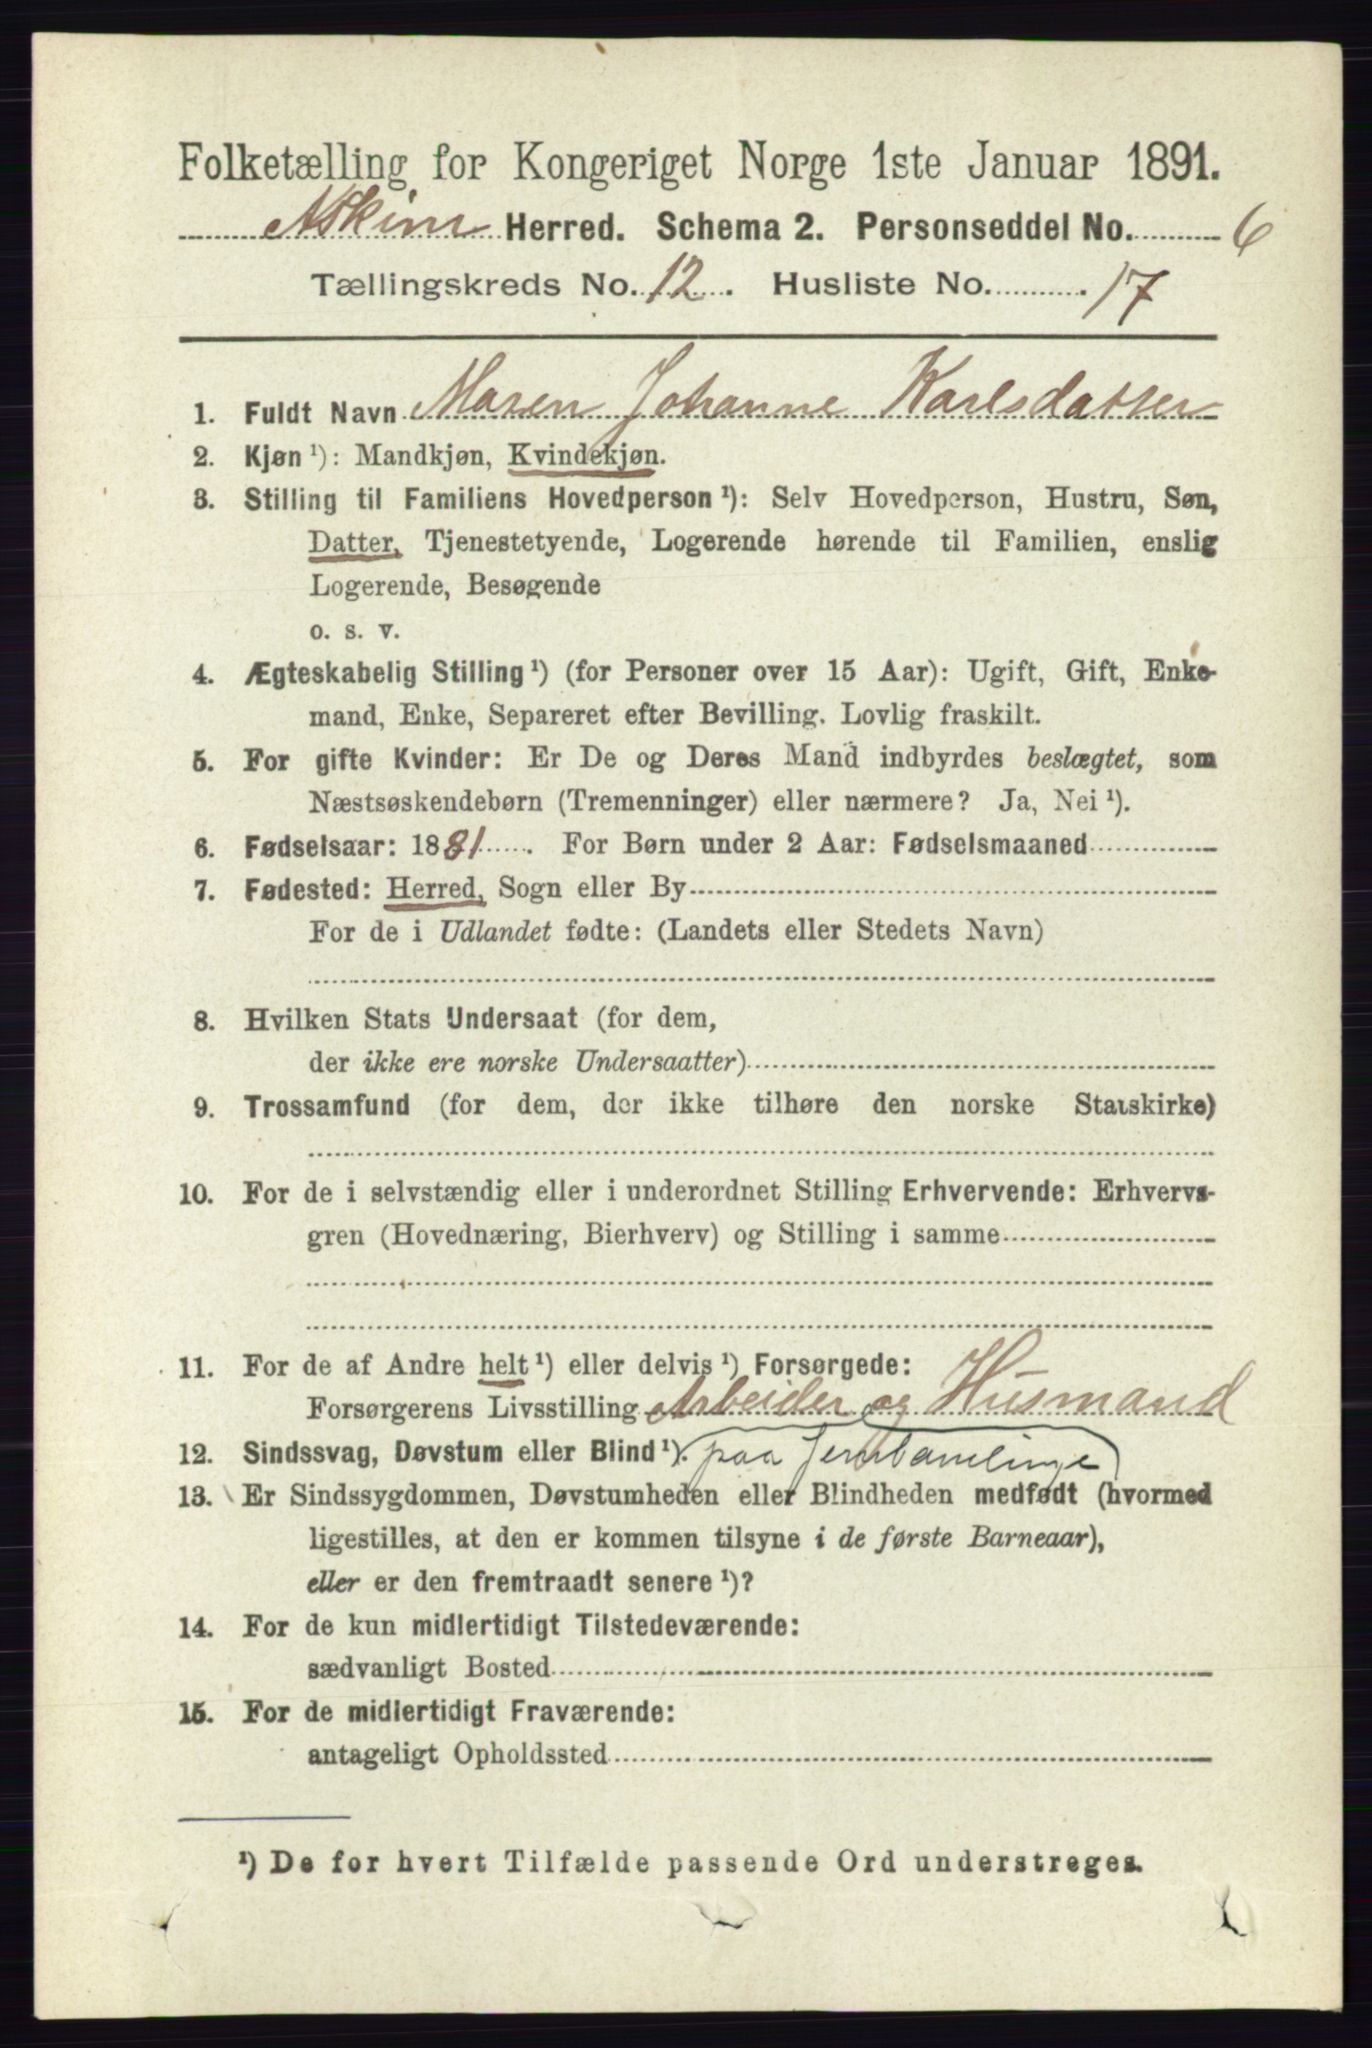 Folketælling for Kongeriget Norge 1ste Januar 1891.
Askim Herred. Schema 2. Personseddel No. 6
Tællingskreds No. 12. Husliste No. 17
1. Fuldt Navn Maren Johanne Karlsdatter
2. Kjøn ¹): Mandkjøn, Kvindekjøn.
3. Stilling til Familiens Hovedperson ¹): Selv Hovedperson, Hustru, Søn,
Datter, Tjenestetyende, Logerende hørende til Familien, enslig
Logerende, Besøgende
o. s. v.
4. Ægteskabelig Stilling ¹) (for Personer over 15 Aar): Ugift, Gift, Enke-
mand, Enke, Separeret efter Bevilling. Lovlig fraskilt.
5. For gifte Kvinder: Er De og Deres Mand indbyrdes beslægtet, som
Næstsøskendebørn (Tremenninger) eller nærmere? Ja, Nei ¹).
6. Fødselsaar: 1881. For Børn under 2 Aar: Fødselsmaaned
7. Fødested: Herred, Sogn eller By
For de i Udlandet fødte: (Landets eller Stedets Navn)
8. Hvilken Stats Undersaat (for dem,
der ikke ere norske Undersaatter)
9. Trossamfund (for dem, der ikke tilhøre den norske Statskirke)
10. For de i selvstændig eller i underordnet Stilling Erhvervende: Erhvervs-
gren (Hovednæring, Bierhverv) og Stilling i samme
11. For de af Andre helt ¹) eller delvis ¹) Forsørgede:
Forsørgerens Livsstilling Arbeider og Husmand
12. Sindssvag, Døvstum eller Blind ¹). paa
13. Er Sindssygdommen, Døvstumheden eller Blindheden medfødt (hvormed
ligestilles, at den er kommen tilsyne i de første Barneaar),
eller er den fremtraadt senere ¹)?
14. For de kun midlertidigt Tilstedeværende:
sædvanligt Bosted
15. For de midlertidigt Fraværende:
antageligt Opholdssted
¹) De for hvert Tilfælde passende Ord understreges.